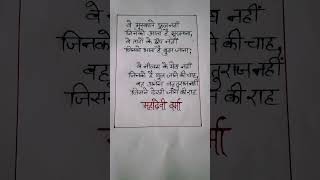 वे मुस्काते फूल नहीं
जिनको आता है मुरझाना,
वे तारों के दीप नहीं
जिनको भाता है बुझ जाना;
वे नीलम के मेघ नहीं
जिनको है घुल जाने की चाह,
वह अनन्त ऋतुराज नहीं
जिसने देखी जाने की राह
महादेवी वर्मा
जिनके
की चाह,
वह
राज नहीं
जिस
की राह